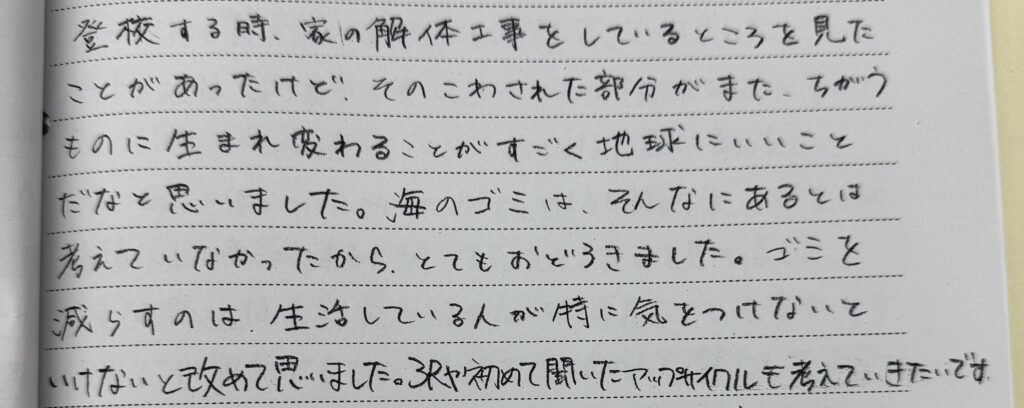 登校する時、家の解体工事をしているところを見た
ことがあったけど、そのこわされた部分がまた、ちがう
ものに生まれ変わることがすごく地球にいいこと
だなと思いました。海のゴミは、そんなにあるとは
考えていなかったから、とてもおどろきました。ゴミを
減らすのは、生活している人が特に気をつけないと
いけないと改めて思いました。3Rや初めて聞いたアップサイクルも考えていきたいです